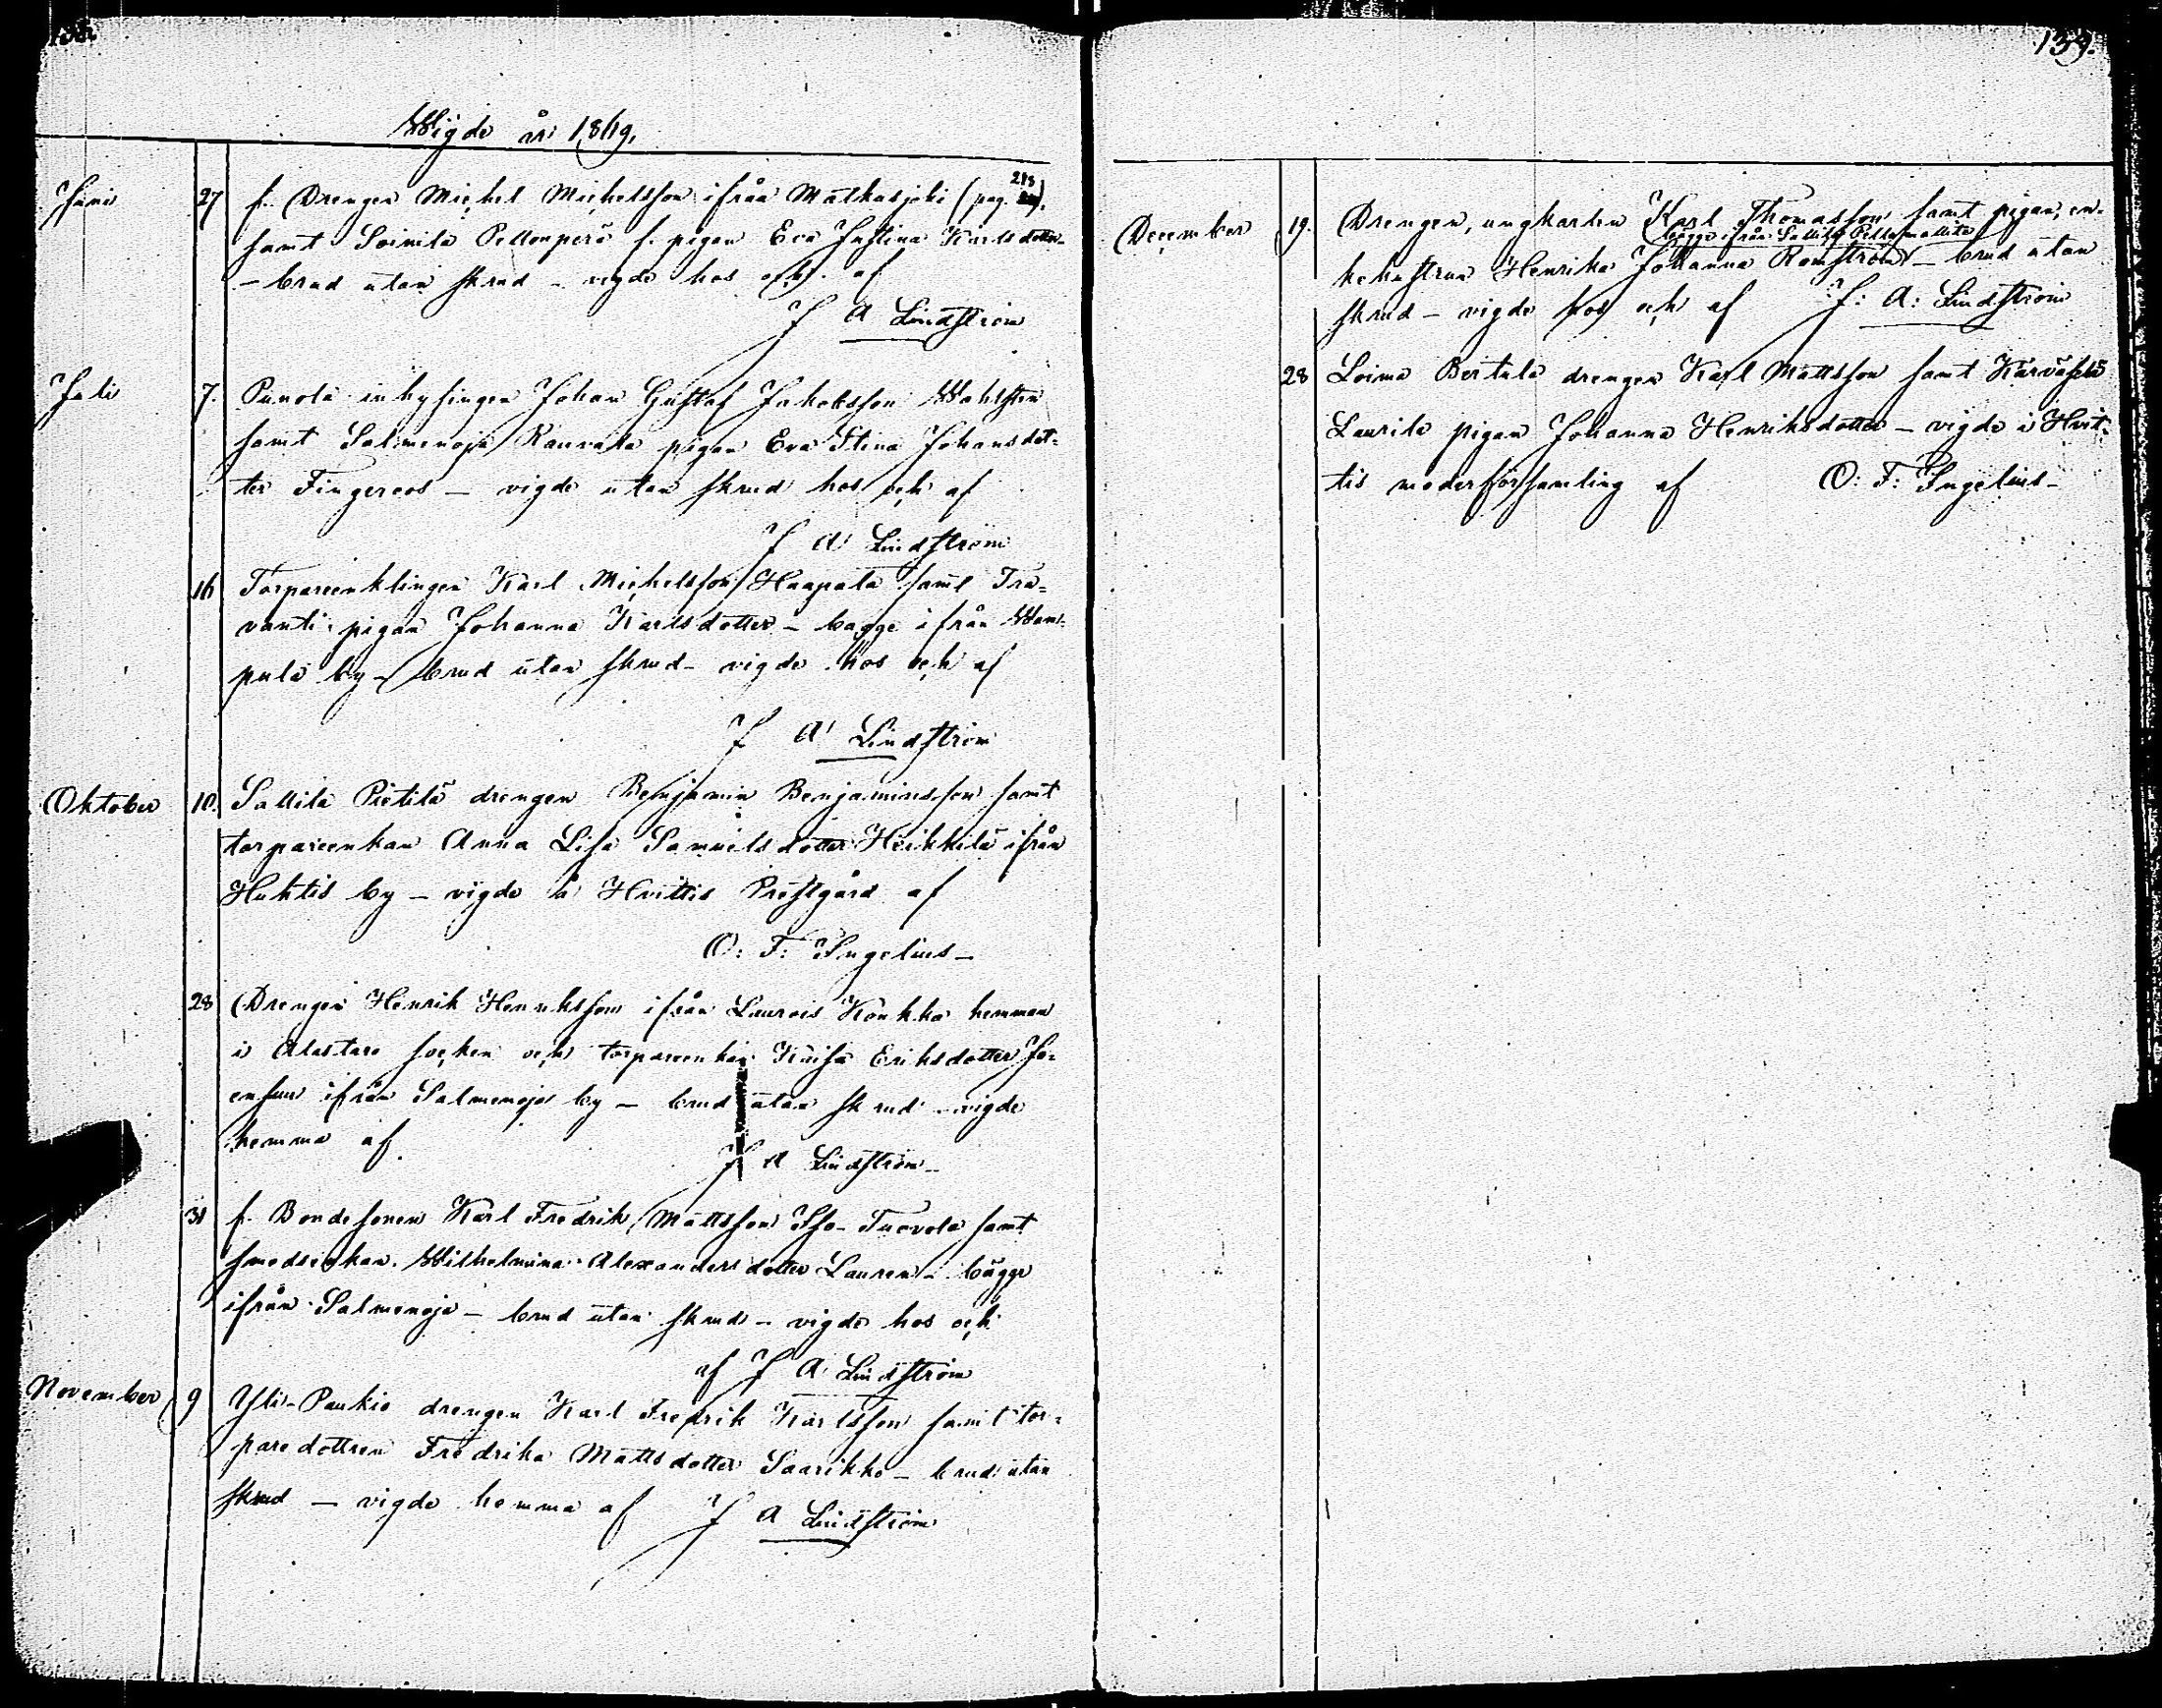 138.
Wigde år 1869.
Juni 27 f. Drengen Michel Michelsson ifrån Matkusjoki (pag. 218).
samt Soinila Pellonperä f. pigan Eva Justina Karlsdotter
– brud utan skrud – vigde hos och af
J A Lindström
Juli 7. Punola inhysingen Johan Gustaf Jakobsson Wahlsten
samt Salmenoja Rauvala pigan Eva Stina Johansdot-
ter Fingeroos – vigde utan skrud hos och af
J A Lindström
16 Torpareenklingen Karl Michelsson Haapala samt Tra-
vanti pigan Johanna Karlsdotter – bägge ifrån Wam-
pula by – brud utan skrud – vigde hos och af
J A Lindström
Oktober 10. Sallila Pietilä drengen Benjamin Benjaminsson samt
torpareenkan Anna Lisa Samuelsdotter Heikkilä ifrån
Huhtis by – vigde å Hvittis Prestgård af
O: F: Ingelius –
28 Drengen Henrik Henriksson ifrån Laurois Könkkö hemman
i Alastaro socken och torpareenkan Kaisa Eriksdotter Jo-
ensuu ifrån Salmenoja by – brud utan skrud – vigde
hemma af
J A Lindström –
31 f. Bondesonen Karl Fredrik Mattsson Iso-Tuovola samt
smedsenkan Wilhelmina Alexandersdotter Lauren – bägge
ifrån Salmenoja – brud utan skrud – vigde hos och
af J A Lindström
November 9 Yli-Paukio drengen Karl Fredrik Karlsson samt tor-
paredottren Fredrika Mattsdotter Saarikko – brud utan
skrud – vigde hemma af J A Lindström
139.
December 19. Drengen, ungkarlen Karl Thomasson samt pigan, en-
bägge ifrån Sallila Peltomallila
kehustrun Henrika Johanna Ramström – brud utan
skrud – vigde hos och af J: A: Lindström
28 Loima Bertula drengen Karl Mattsson samt Karväselä
Laurila pigan Johanna Henriksdotter – vigde i Hvit-
tis moderförsamling af O: F: Ingelius –